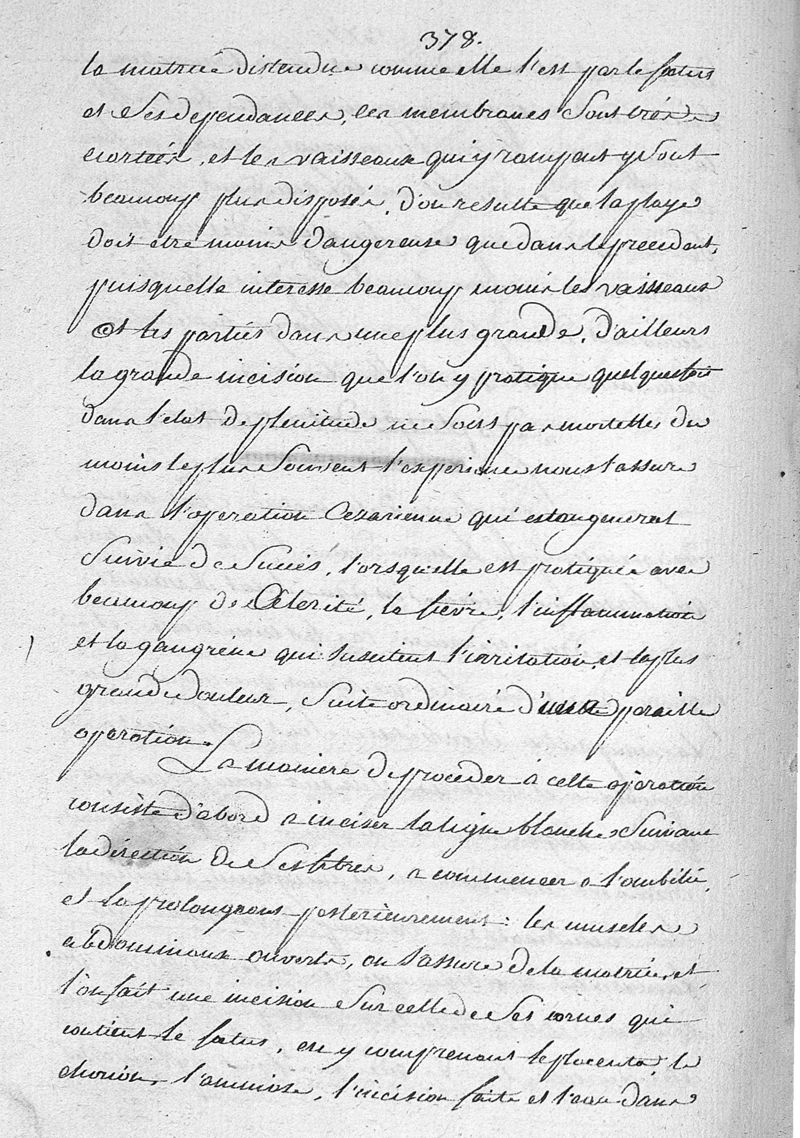 378.
la matrice distendue comme elle l'est par le foetus
et Ses dependances, les membranes Sont très
ecartées, et les vaisseaux qui y rampent y Sont
beaucoup plus disposés, d'ou resulte que la playe
doit etre moins dangereuse que dans le precedent,
puisquelle interesse beaucoup moins les vaisseaux
et les parties dans une plus grande, d'ailleurs
la grande incision que l'on y pratique quelquefois
dans l'etat de plenitude ne Sont pas mortelles du
moins le plus Souvent l'experience nous l'assure
dans l'operation Cezarienne qui est en general
Suivie de Succès, l'orsquelle est pratiquée avec
beaucoup de Célerité, la fièvre, l'inflammation
et la gangrene qui Suscitent l'irritation, et la plus
grande douleur, Suite ordinaire d'une pareille
operation.
La maniere de proceder à cette operation
consiste d'abord a inciser la ligne blanche Suivant
la direction de Ses fibres, a commencer a l'ombilic,
et la prolongeant posterieurement: les muscles
abdominaux ouverts, on S'assure de la matrice, et
l'on fait une incision Sur celle de Ses cornes qui
contient le foetus, en y comprenant le placenta, le
chorion, l'amnios, l'incision faite et l'eau dans